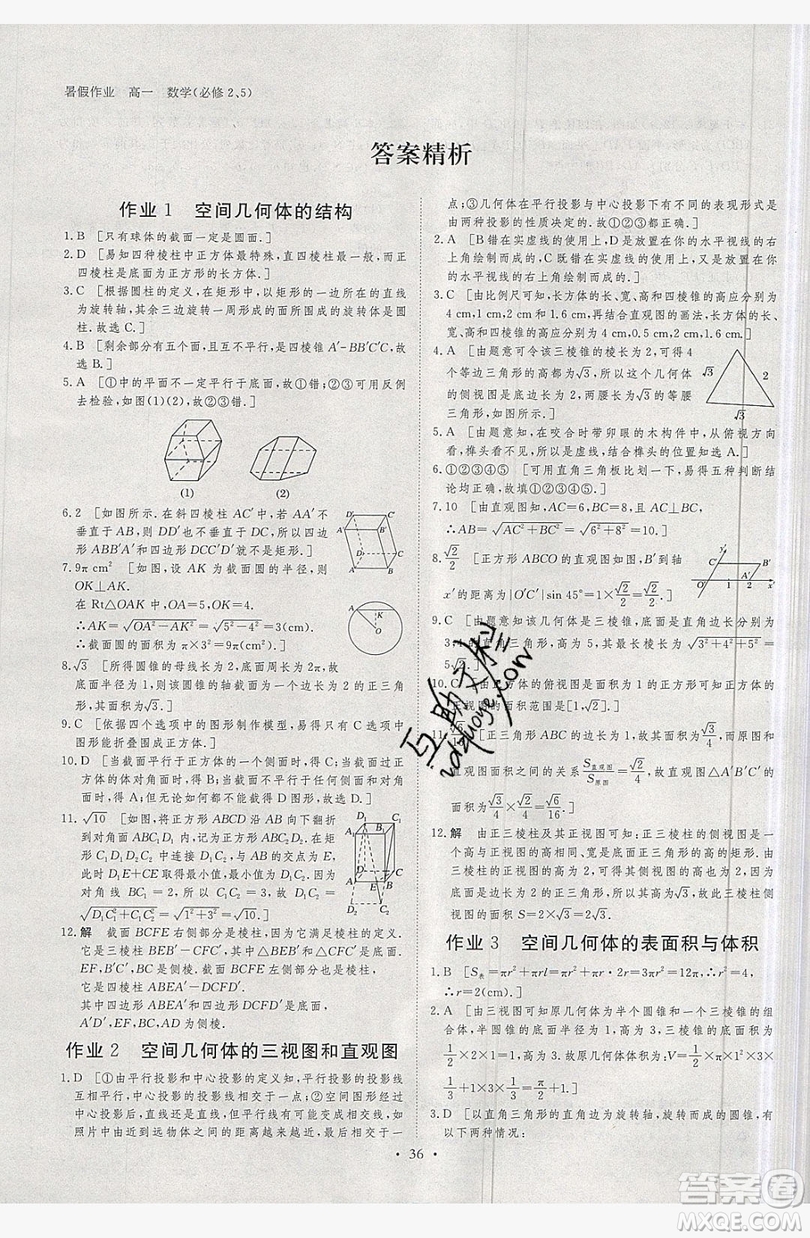 暑假作业　高一　数学(必修2、5)
答案精析
作业1　空间几何体的结构
1.B　[只有球体的截面一定是圆面.]
2.D　[易知四棱柱中正方体最特殊,直四棱柱最一般,正
四棱柱是底面为正方形的长方体.]
3.C　[根据圆柱的定义,在矩形中,以矩形的一边所在的直线
为旋转轴,其余三边旋转一周形成的面所围成的旋转体是圆
柱.故选C.]
4.B　[剩余部分有五个面,且互不平行,是四棱锥A-BB′C′C,故
选B.]
5.A　[①中的平面不一定平行于底面,故①错.②③可用反例
去检验,如图(1)(2),故②③错.]
(1)
(2)
6.2　[如图所示.在斜四棱柱AC′中,若AA′不
垂直于AB,则DD′也不垂直于DC,故四边
形ABB′A′和四边形DCC′D′就不是矩形.]
D′ C′ A′ B′ D C A B
7.9π cm²　[如图所示,设AK为截面圆的半径,则
OK⊥AK.
在Rt△OAK中,OA=5(cm),OK=4(cm),
∴AK=√(OA²−OK²)=√(5²−4²)=3(cm),
∴截面圆的面积为π×3²=9π(cm²).]
A K O
8.√3　[所得圆锥的母线长为2,底面圆周长为2π,故
底面半径为1,则该圆锥的轴截面是边长为2的正三角
形,其高为√3.]
9.C　[依据四个选项中的图形制作模型,只有C选项中的
图形能折叠围成正方体.]
10.D　[当截面平行于正方体的一个侧面时得③,当截面过正
方体的体对角面时得②,当截面不平行于任何侧面也不过
对角面时得①,但无论如何都不能截得④.]
11.√10　[如图,将正方形ABCD沿AB向下翻折
到对角面ABC₁D₁内,成为正方形ABC₂D₂,
在矩形C₁D₁D₂C₂中连接D₁C₂,与AB的交点为E,
此时D₁E+CE取得最小值,最小值为D₁C₂的长.
因为对角线BC₁=2,C₁C₂=3,故D₁C₂=
√(D₁C₁²+C₁C₂²)=√(1²+3²)=√10.]
12.解　截面BCFE右侧部分是棱柱,
因为它满足棱柱的定义.
它是三棱柱BEB′-CFC′,
其中△BEB′和△CFC′是底面.
EF,B′C′,BC是侧棱,
截面BCFE左侧部分也是棱柱.
它是四棱柱ABEA′-DCFD′.
其中四边形ABEA′和四边形DCFD′是底面.
A′D′,EF,BC,AD为侧棱.
作业2　空间几何体的三视图和直观图
1.D　[①由平行投影和中心投影的定义知,平行投影的投影线
互相平行,中心投影的投影线相交于一点;②空间图形经过
中心投影后,直线可能变成直线,也可能变成一个点,如
照片中由近到远物体之间的距离越来越近,最后相交于一
点;③几何体在平行投影与中心投影下有不同的表现形式是
由两种投影的性质决定的.故①②③均正确.]
2.A　[B错在实虚线的使用上,D是放置在你的水平视线的
左上角绘制而成的,C既错在实虚线上,又是放置在你的水
平视线的右上角绘制而成的.]
3.C　[由比例尺可知,长方体的长、宽、高和四棱锥的高应分别为
4 cm,1 cm,2 cm和1.6 cm,再结合直观图的画法,长方体的
长、宽、高和四棱锥的高应分别为4 cm,0.5 cm,2 cm,1.6 cm.]
4.A　[由题意可令该三棱锥的棱长为2,可得4
个等边三角形的高都为√3,所以三棱锥的侧
视图是底边长为√3,两腰长分别为√3,2的等
腰三角形,故选A.]
√3 2 √3
5.A　[由题意知,在咬合时带卯眼的木构件中,从俯视方向看,
榫头看不见,所以是虚线,结合榫头的位置知选A.]
6.①②③④⑤　[可用直角三角板比划一下,易得五种判断结
论均有可能出现.]
7.10　[由直观图知,AC=6,BC=8,AC⊥BC,
∴AB=√(AC²+BC²)=√(6²+8²)=10.]
8.√2/2　[正方形ABCO的直观图如图,则B′到轴
x′的距离为|O′C′|sin 45°=1/2×√2/2=√2/4.]
9.C　[由题意知该几何体为三棱锥,底面为直角边长分别为3
和4的直角三角形,高为5,故最长的棱长为√(3²+4²+5²)=
5√2.]
10.C　[由题意可知正方体的俯视图是面积为1的正方形,可知正方体
的正视图的面积范围是[1,√2].]
△ABC的直观图的面积为√3/4,而原图和
直观图面积之间的关系S直观图/S原图=√2/4,故直观图△A′B′C′的
面积为√3/4×√2/4=√6/16.]
12.解　由正三棱柱及其正视图可知:正三棱柱的侧视图是一
个与高、宽相等的矩形,而宽与底面正三角形的高相等.由三
视图中高、宽的关系可知侧视图的高为2,宽为√3,所以侧视
图的面积S=2×√3=2√3.
作业3　空间几何体的表面积与体积
1.B　[S表=πr²+πrl=πr²+πr·2r=3πr²=12π,∴r²=4,
∴r=2(cm).]
2.A　[由三视图可知原几何体为半个圆锥和一个三棱锥的组
合体,半圆锥的底面半径为1,高为3,三棱锥的底面积为
1/2×2×1=1,高为3.故原几何体体积为:V=1/2×π×1²×3×
1/3+1×3×1/3=π/2+1.]
3.D　[以直角三角形的直角边为旋转轴,旋转而成的圆锥,有
以下两种情况:
· 36 ·
互助文栏
答案圈
MXQE.COM